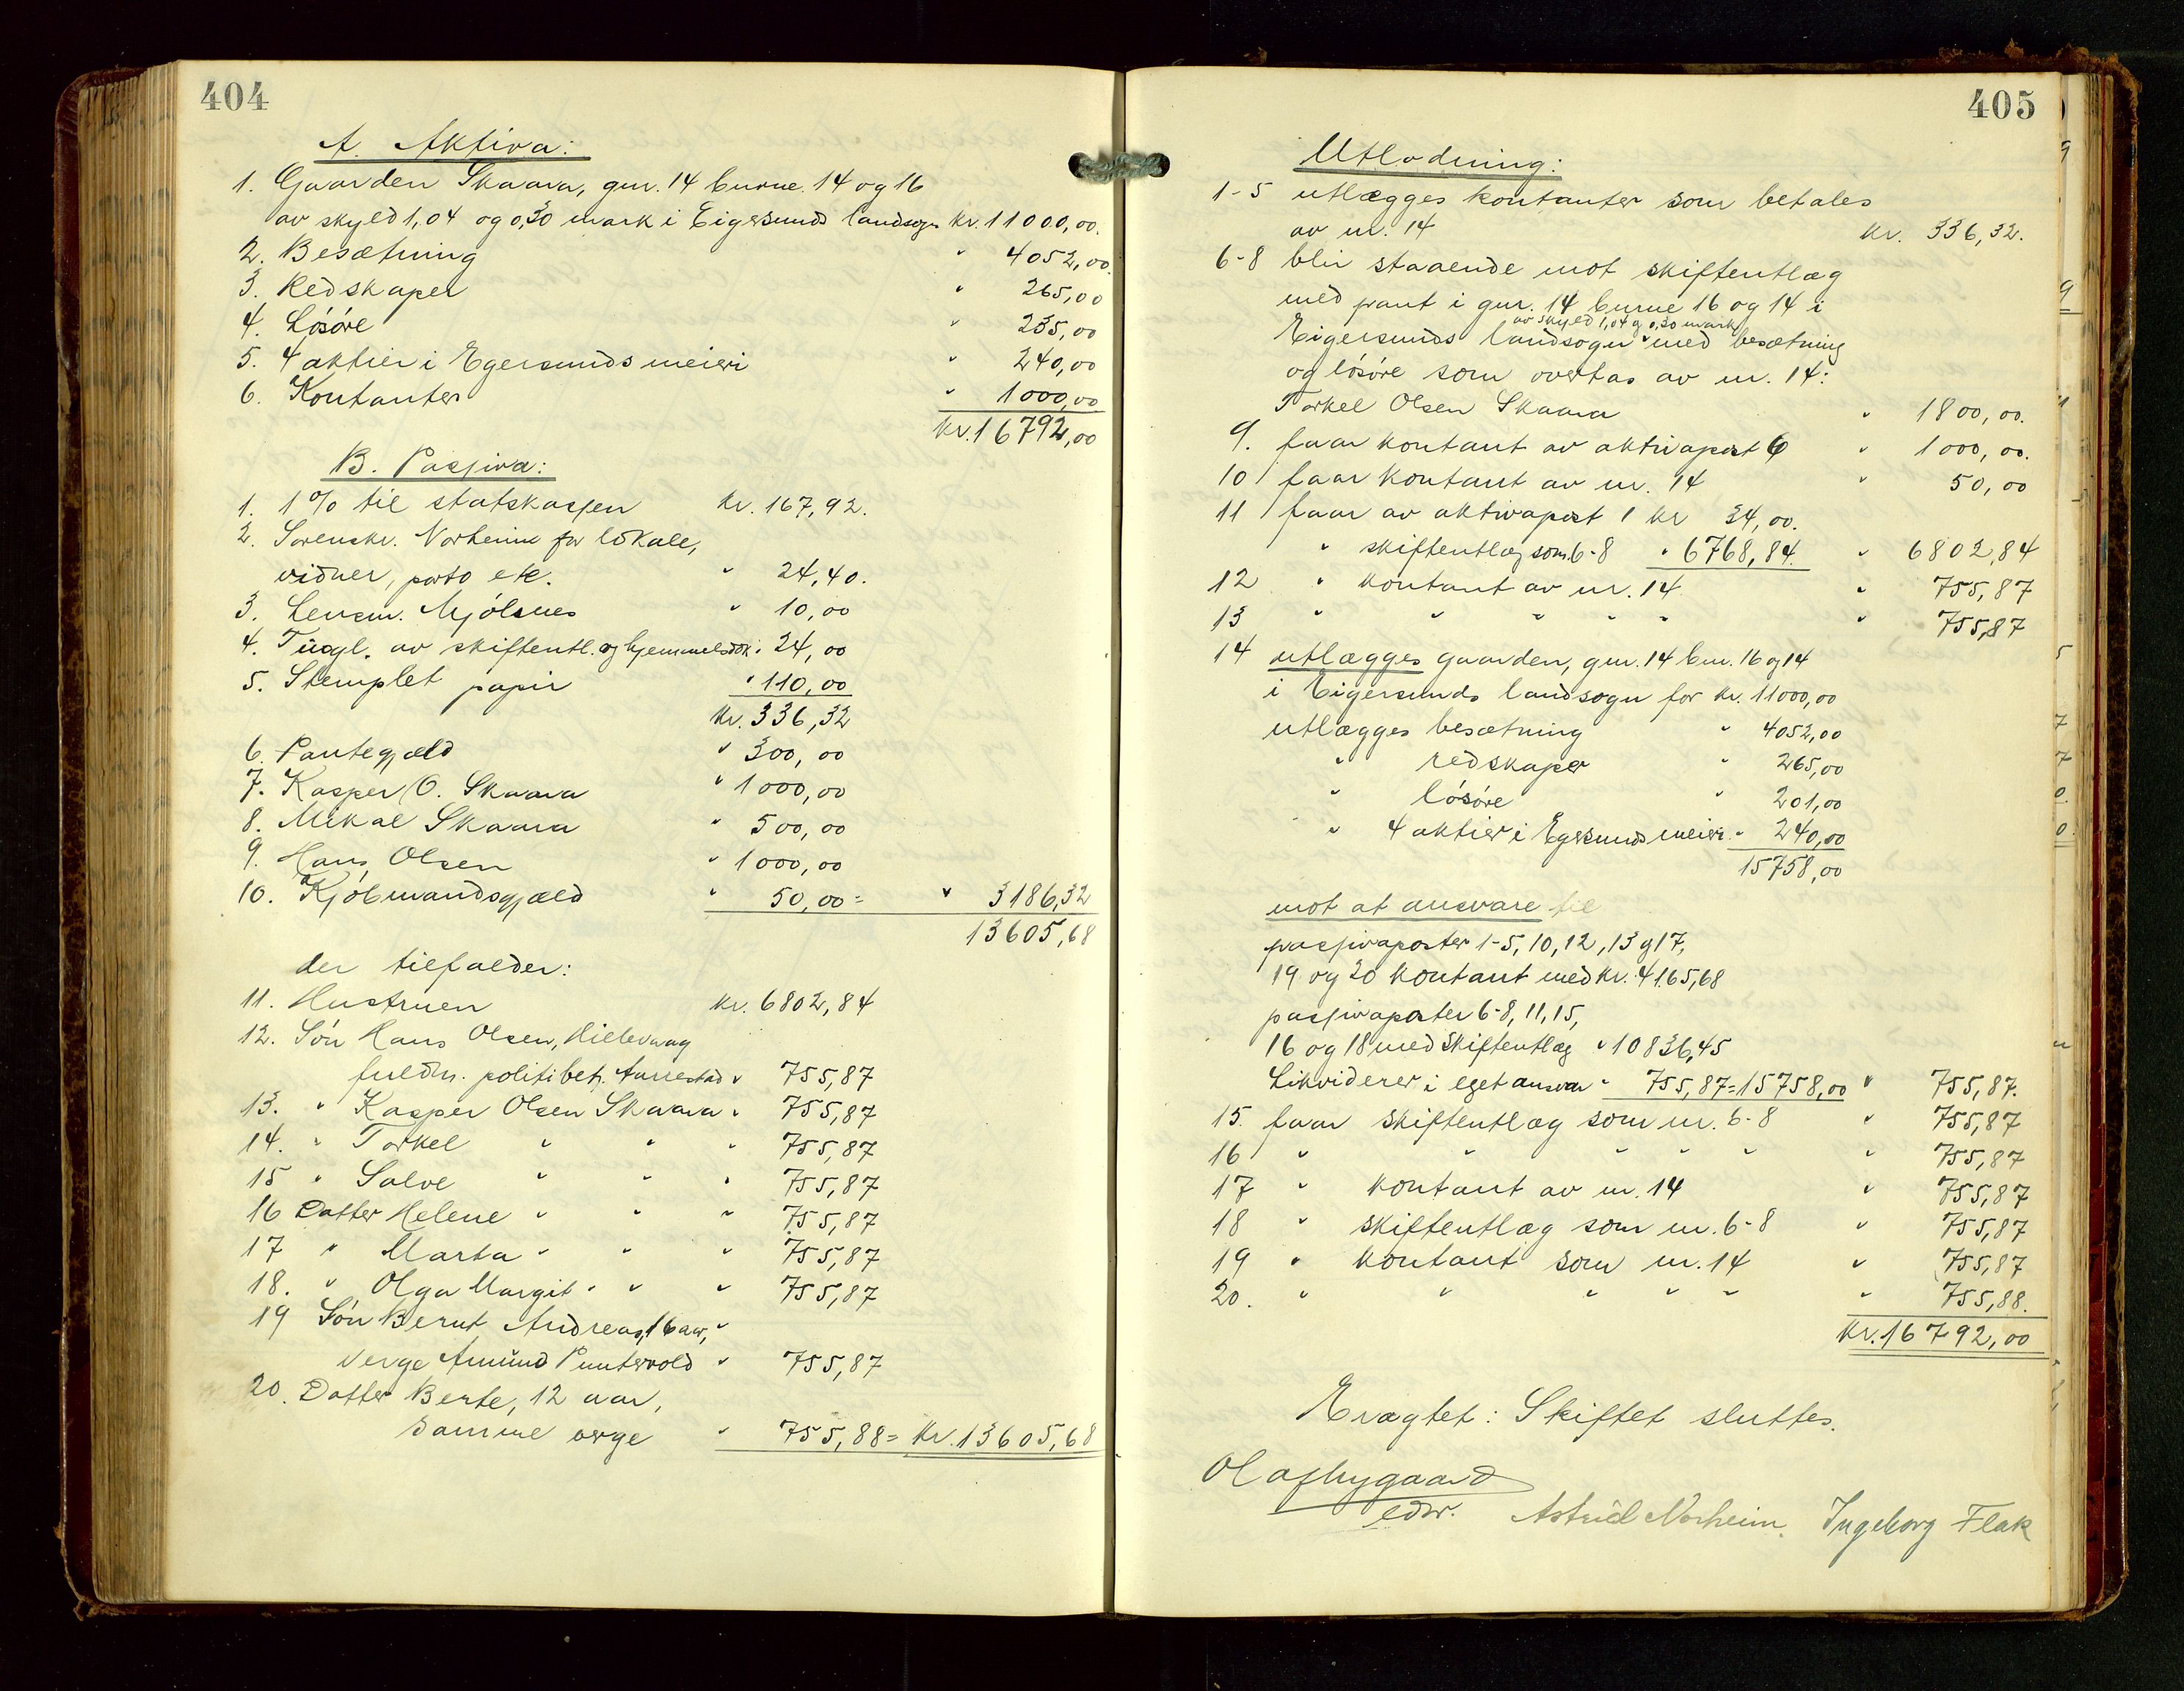 404
A. Aktiva:
1. Gaarden Skaara, gnr. 14 brnrne. 14 og 16
av skyld 1,04 og 0,30 mark i Eigersunds landsogn kr. 11000,00.
2. Besætning " 4052,00.
3. Redskaper " 265,00
4. Løsøre " 235,00
5. 4 aktier i Egersunds meieri " 240,00
6. Kontanter " 1000,00
kr. 16792,00
B. Passiva:
1. 1% til statskassen kr. 167,92.
2. Sorenskr. Norheim for lokale,
vidner, porto etc. " 24,40.
3. Lensm. Mjølsnes " 10,00
4. Tingl. av skifteutl. og hjemmelsdok. " 24,00
5. Stemplet papir " 110,00
kr. 336,32
6. Pantegjæld " 300,00
7. Kasper O. Skaara " 1000,00
8. Mikal Skaara " 500,00
9. Hans Olsen " 1000,00
10. Kjøbmandsgjæld " 50,00 = " 3186,32
13605,68
der tilfalder:
11. Hustruen kr. 6802,84
12. Søn Hans Olsen, Hillevaag
fuldm. politibetj. Aarrestad " 755,87
13. " Kasper Olsen Skaara " 755,87
14. " Torkel " " " 755,87
15 " Salve " " " 755,87
16 Datter Helene " " " 755,87
17 " Marta " " " 755,87
18. " Olga Margit " " " 755,87
19 Søn Bernt Andreas, 16 aar, "
verge Amund Puntervold " 755,87
20. Datter Berte, 12 aar,
samme verge " 755,88 = kr. 13605,68
405
Utlodning:
1-5 utlægges kontanter som betales
av nr. 14 kr. 336,32.
6-8 blir staaende mot skifteutlæg
med pant i gnr. 14 brnrne 16 og 14 i
av skyld 1,04 og 0,30 mark
Eigersunds landsogn med besætning
og løsøre som overtas av nr. 14:
Torkel Olsen Skaara " 1800,00.
9. faar kontant av aktivapost 6 " 1000,00.
10 faar kontant av nr. 14 " 50,00
11 faar av aktivapost 1 kr 34,00.
" skifteutlæg som 6-8 " 6768,84. " 6802,84
12 " kontant av nr. 14 " 755,87
13 " " " " " " 755,87
14 utlægges gaarden, gnr. 14 bnr. 16 og 14
i Eigersunds landsogn for kr. 11000,00
utlægges besætning " 4052,00
" redskaper " 265,00
" løsøre " 201,00
" 4 aktier i Egersunds meieri " 240,00
15758,00
mot at ansvare til
passivaposter 1-5, 10, 12, 13 og 17,
19 og 20 kontant med kr. 4165,68
passivaposter 6-8, 11, 15,
16 og 18 med skifteutlæg " 10836,45
Likviderer i eget ansvar " 755,87 = 15758,00 " 755,87.
15. faar skifteutlæg som nr. 6-8 " 755,87
16 " " " " " " 755,87
17 " kontant av nr. 14 " 755,87
18 " skifteutlæg som nr. 6-8 " 755,87
19 " kontant som nr. 14 " 755,87
20. " " " " " " 755,88.
kr. 16792,00
Eragtet: Skiftet sluttes.
edsv.
Astrid Norheim. Ingeborg Flak